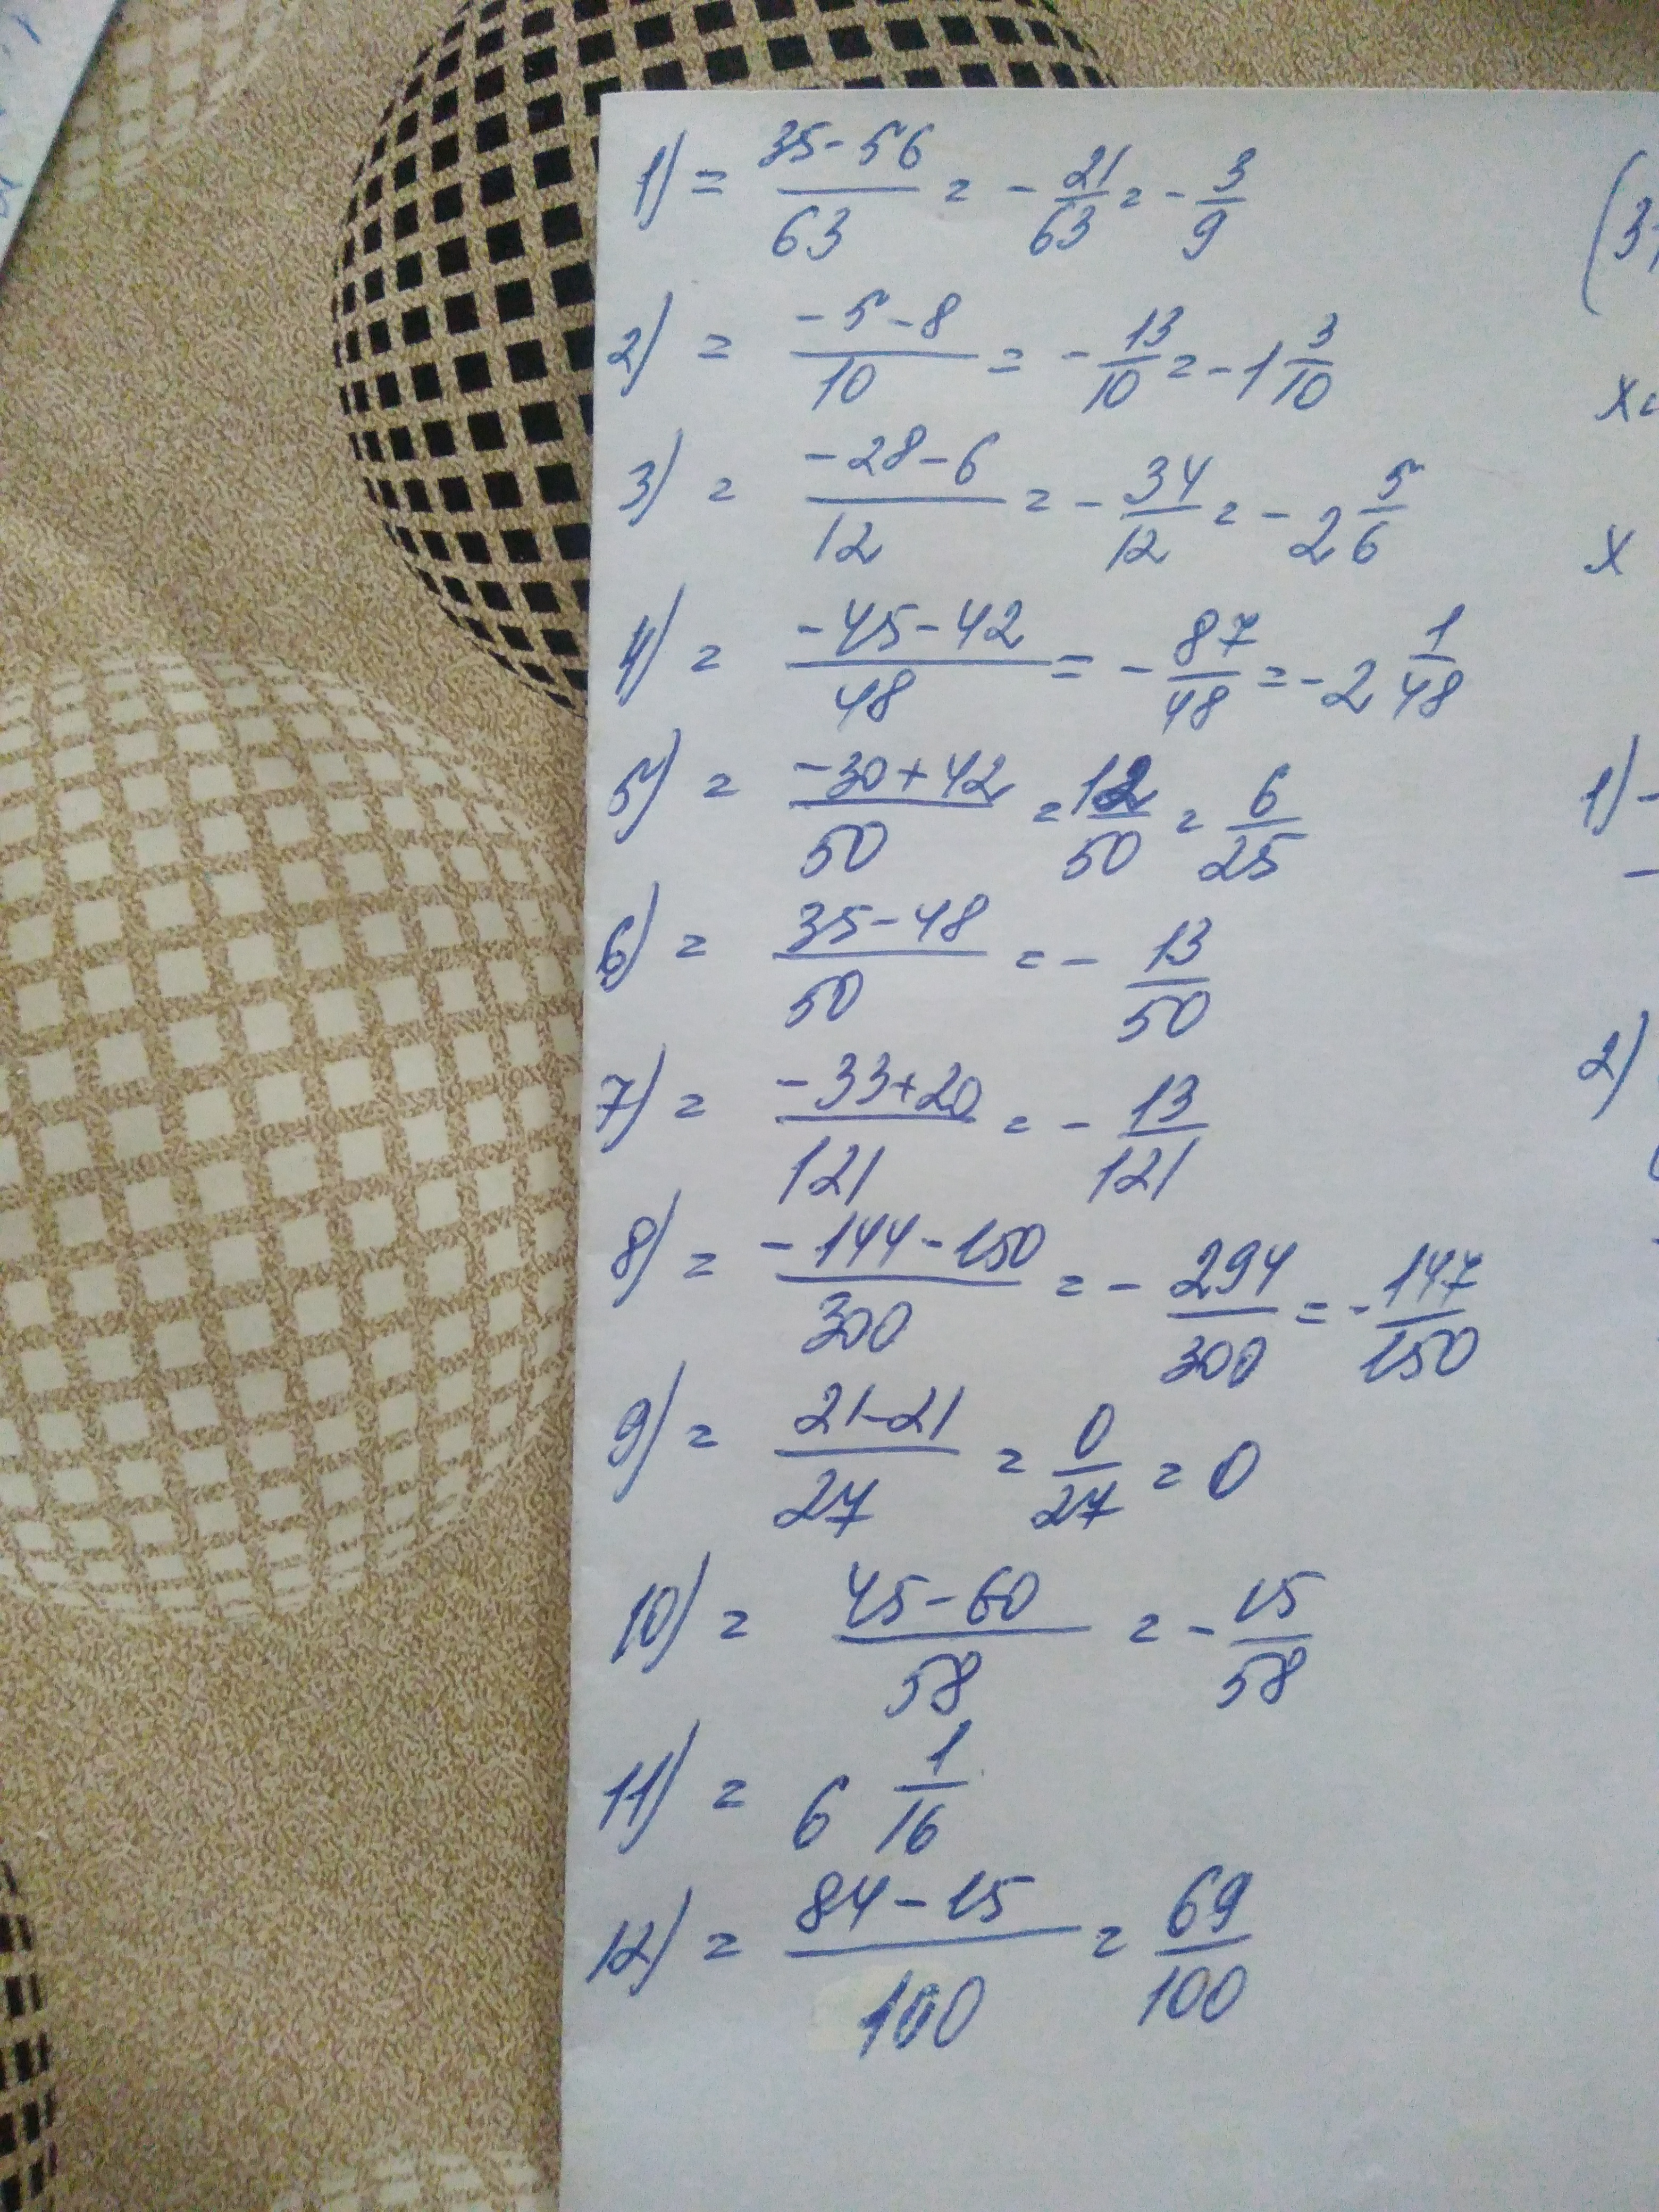 1) = (35-56)/63 = -21/63 = -3/9
2) = (-5-8)/10 = -13/10 = -1 3/10
3) = (-28-6)/12 = -34/12 = -2 5/6
4) = (-45-42)/48 = -87/48 = -2 1/48
5) = (-30+42)/50 = 12/50 = 6/25
6) = (35-48)/50 = -13/50
7) = (-33+20)/121 = -13/121
8) = (-144-150)/300 = -294/300 = -147/150
9) = (21-21)/27 = 0/27 = 0
10) = (45-60)/58 = -15/58
11) = 6 1/16
12) = (84-15)/100 = 69/100
(3
x
x
1) -
-
2)